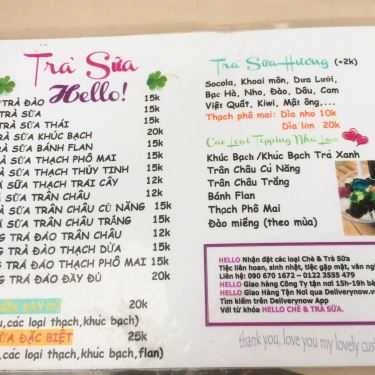 Trà Sữa
Hello!
TRÀ ĐÀO 15k
TRÀ SỮA 15k
TRÀ SỮA THÁI 15k
TRÀ SỮA KHÚC BẠCH 20k
TRÀ SỮA BÁNH FLAN 15k
SỮA THẠCH PHÔ MAI 15k
SỮA THẠCH THỦY TINH 15k
SỮA THẠCH TRÁI CÂY 12k
SỮA TRÂN CHÂU 12k
SỮA TRÂN CHÂU CỦ NĂNG 15k
SỮA TRÂN CHÂU TRẮNG 15k
TRÁ ĐÁO TRÂN CHÂU 12k
TRÁ ĐÁO THẠCH DỪA 15k
TRÁ ĐÁO THẠCH PHÔ MAI 15k
TRÁ ĐÁO ĐẦY ĐỦ 20k
20k
các loại thạch,khúc bạch)
ĐẶC BIỆT 25k
các loại thạch,khúc bạch,flan)
Trà Sữa Hương (+2k)
Socola, Khoai môn, Dưa Lưới,
Bạc Hà, Nho, Đào, Dâu, Cam
Việt Quất, Kiwi, Mật ong,...
Thạch phô mai: Dĩa nhỏ 10k
Dĩa lớn 20k
Các Loại Topping Như Sau
Khúc Bạch /Khúc Bạch Trà Xanh
Trân Châu Củ Năng
Trân Châu Trắng
Bánh Flan
Thạch Phô Mai
Đào miếng (theo mùa)
HELLO Nhận đặt các loại Chè & Trà Sữa
Tiệc liên hoan, sinh nhật, tiệc gặp mặt, văn
Liên hệ: 090 670 1672 – 0122 3555 479
HELLO Giao hàng Công ty tận nơi 15h-19h
HELLO Giao Hàng Tận Nơi qua Deliverynow.v
Tìm kiếm trên Deliverynow App
Với từ khóa HELLO CHÈ & TRÀ SỮA.
thank you, love you my lovely cus